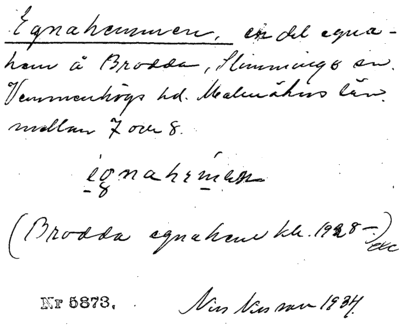 Egnahemmen, en del egna-
hem å Brodda, Slimminge sn.
Vemmenhögs hd. Malmöhus län.
mellan 7 och 8.
egnahemen
(Brodda egnahem kk. 1928-)
Nr 5873. Nils Nilsson 1934.